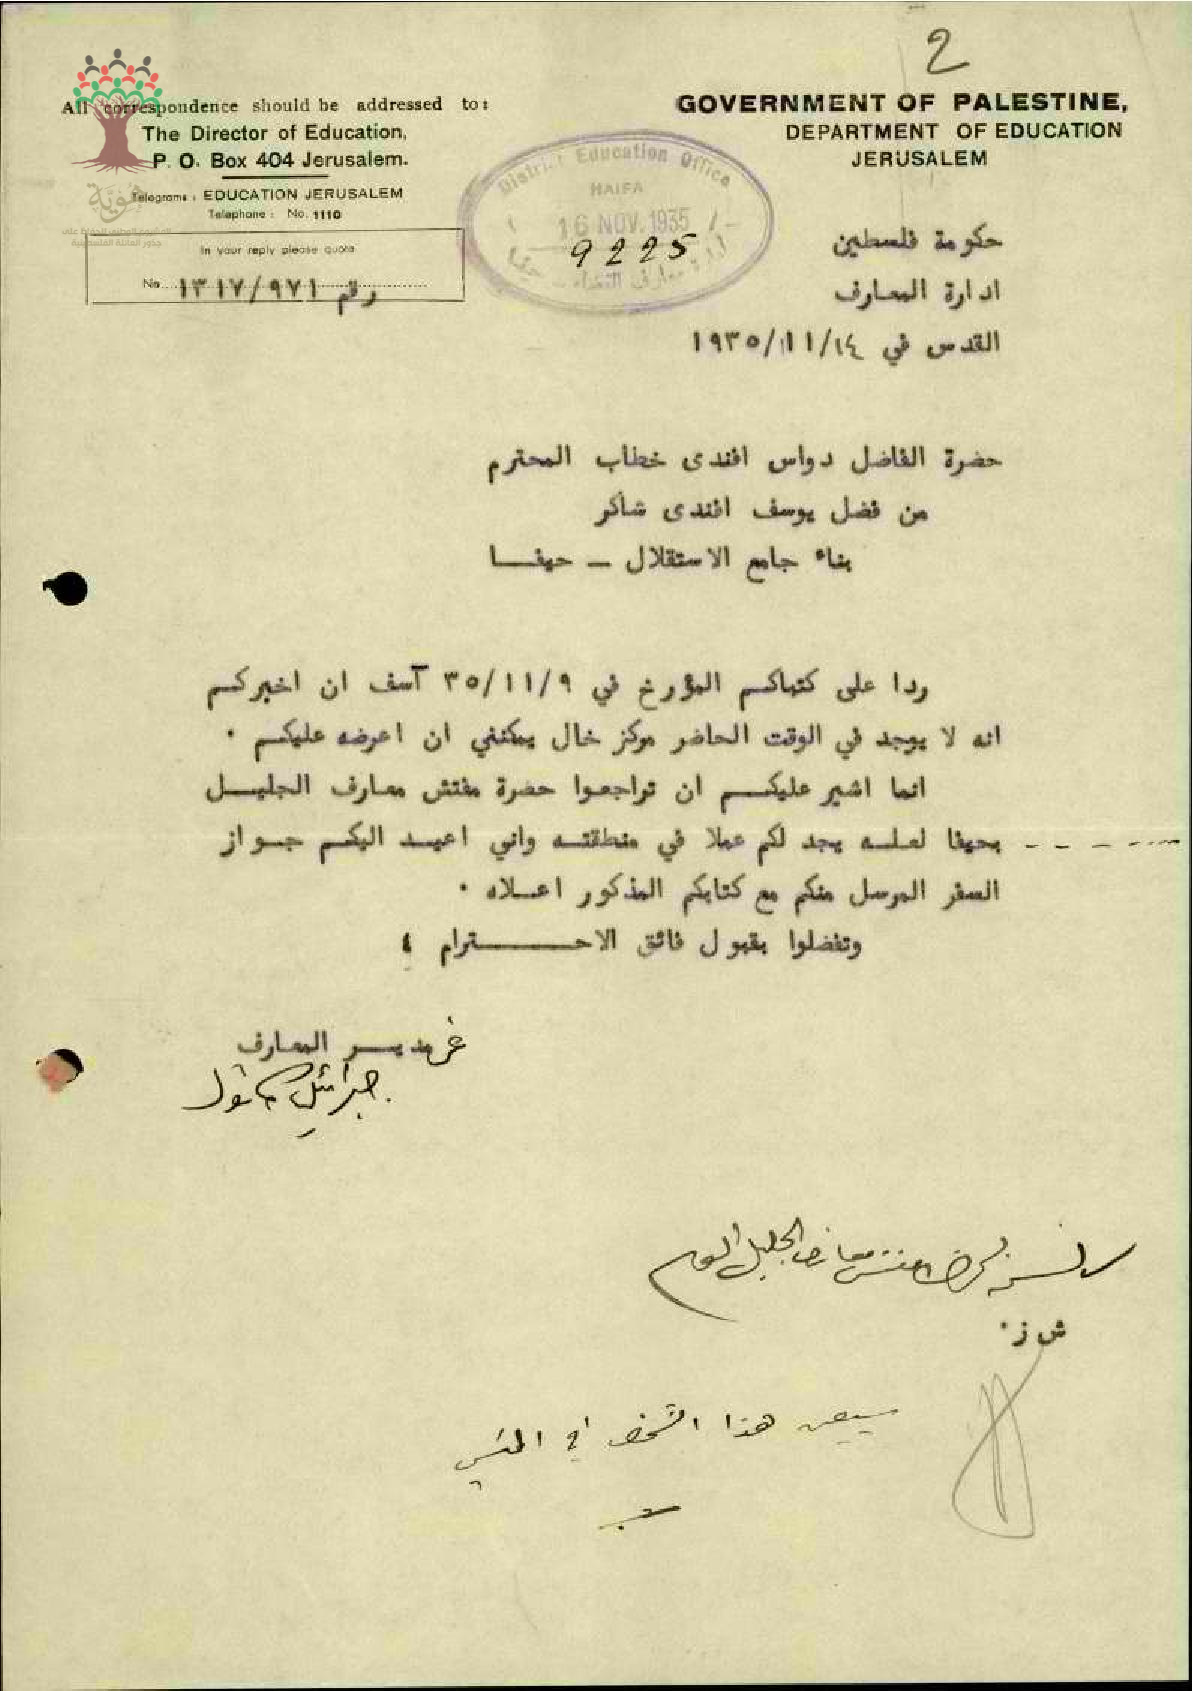 2
All correspondence should be addressed to:
The Director of Education,
P. O. Box 404 Jerusalem.
Telegrams: EDUCATION JERUSALEM
Telephone: No. 1110
In your reply please quote
No. رقم ١٣١٧/٩٧١
GOVERNMENT OF PALESTINE,
DEPARTMENT OF EDUCATION
JERUSALEM
District Education Office
HAIFA
16 NOV. 1935
9225
هويّة
حكومة فلسطين
ادارة المعارف
القدس في ١٩٣٥/١١/١٤
حضرة الفاضل دواس افندى خطاب المحترم
من فضل يوسف افندى شاكر
بناء جامع الاستقلال - حيفا
ردا على كتباكم المؤرخ في ٣٥/١١/٩ آسف ان اخبركم
انه لا يوجد في الوقت الحاضر مركز خال يمكنني ان اعرضه عليكم ٠
انما اشير عليكم ان تراجعوا حضرة مفتش معارف الجليل
بحيفا لعله يجد لكم عملا في منطقته واني اعيد اليكم جواز
السفر المرسل منكم مع كتابكم المذكور اعلاه ٠
وتفضلوا بقبول فائق الاحترام ؛
عن مدير المعارف
جبرائيل كاتول
مفتش معارف الجليل
ش ز ٠
هذا الشخص في